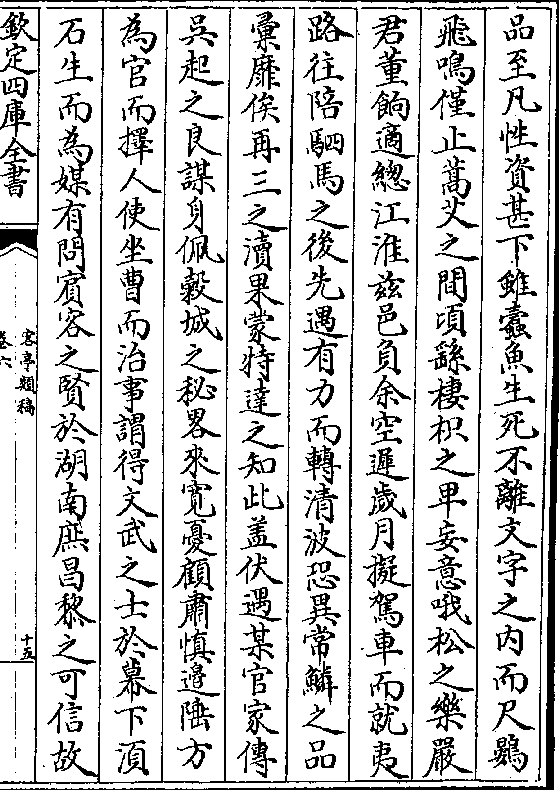 品至凡性資甚下雖蠧魚生死不離文字之内而尺鷃
飛鳴僅止蒿艾之間頃繇棲枳之卑妄意哦松之樂嚴
君董餉適總江淮兹邑負余空遲歳月擬駕車而就夷
路往陪駟馬之後先遇有力而轉清波恐異常鱗之品
彚靡俟再三之瀆果蒙特達之知此盖伏遇某官家傳
吳起之良謀身佩穀城之秘畧來寛憂顧肅慎邊陲方
為官而擇人使坐曹而治事謂得文武之士於幕下湏
石生而為媒有問賓客之賢於湖南庶昌黎之可信故
欽定四庫全書
客亭類稿
卷六
十五